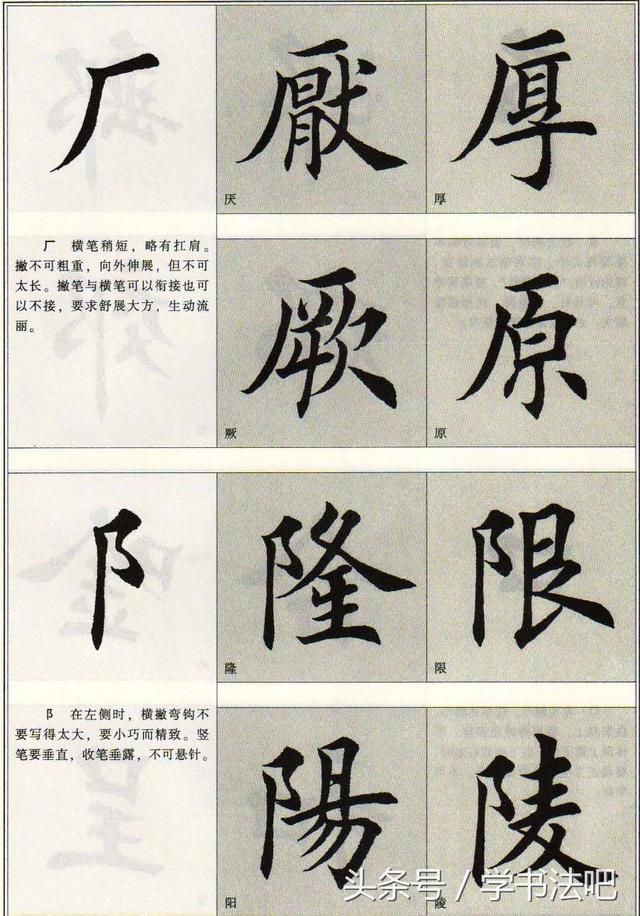 厂
厭
厚
厌
厚
厂 横笔稍短，略有扛肩。
撇不可粗重，向外伸展，但不可
太长。撇笔与横笔可以衔接也可
以不接，要求舒展大方，生动流
丽。
厥
原
厥
原
阝
隆
限
隆
限
阝 在左侧时，横撇弯钩不
要写得太大，要小巧而精致。竖
笔要垂直，收笔垂露，不可悬针。
陽
陵
阳
陵
头条号／学书法吧